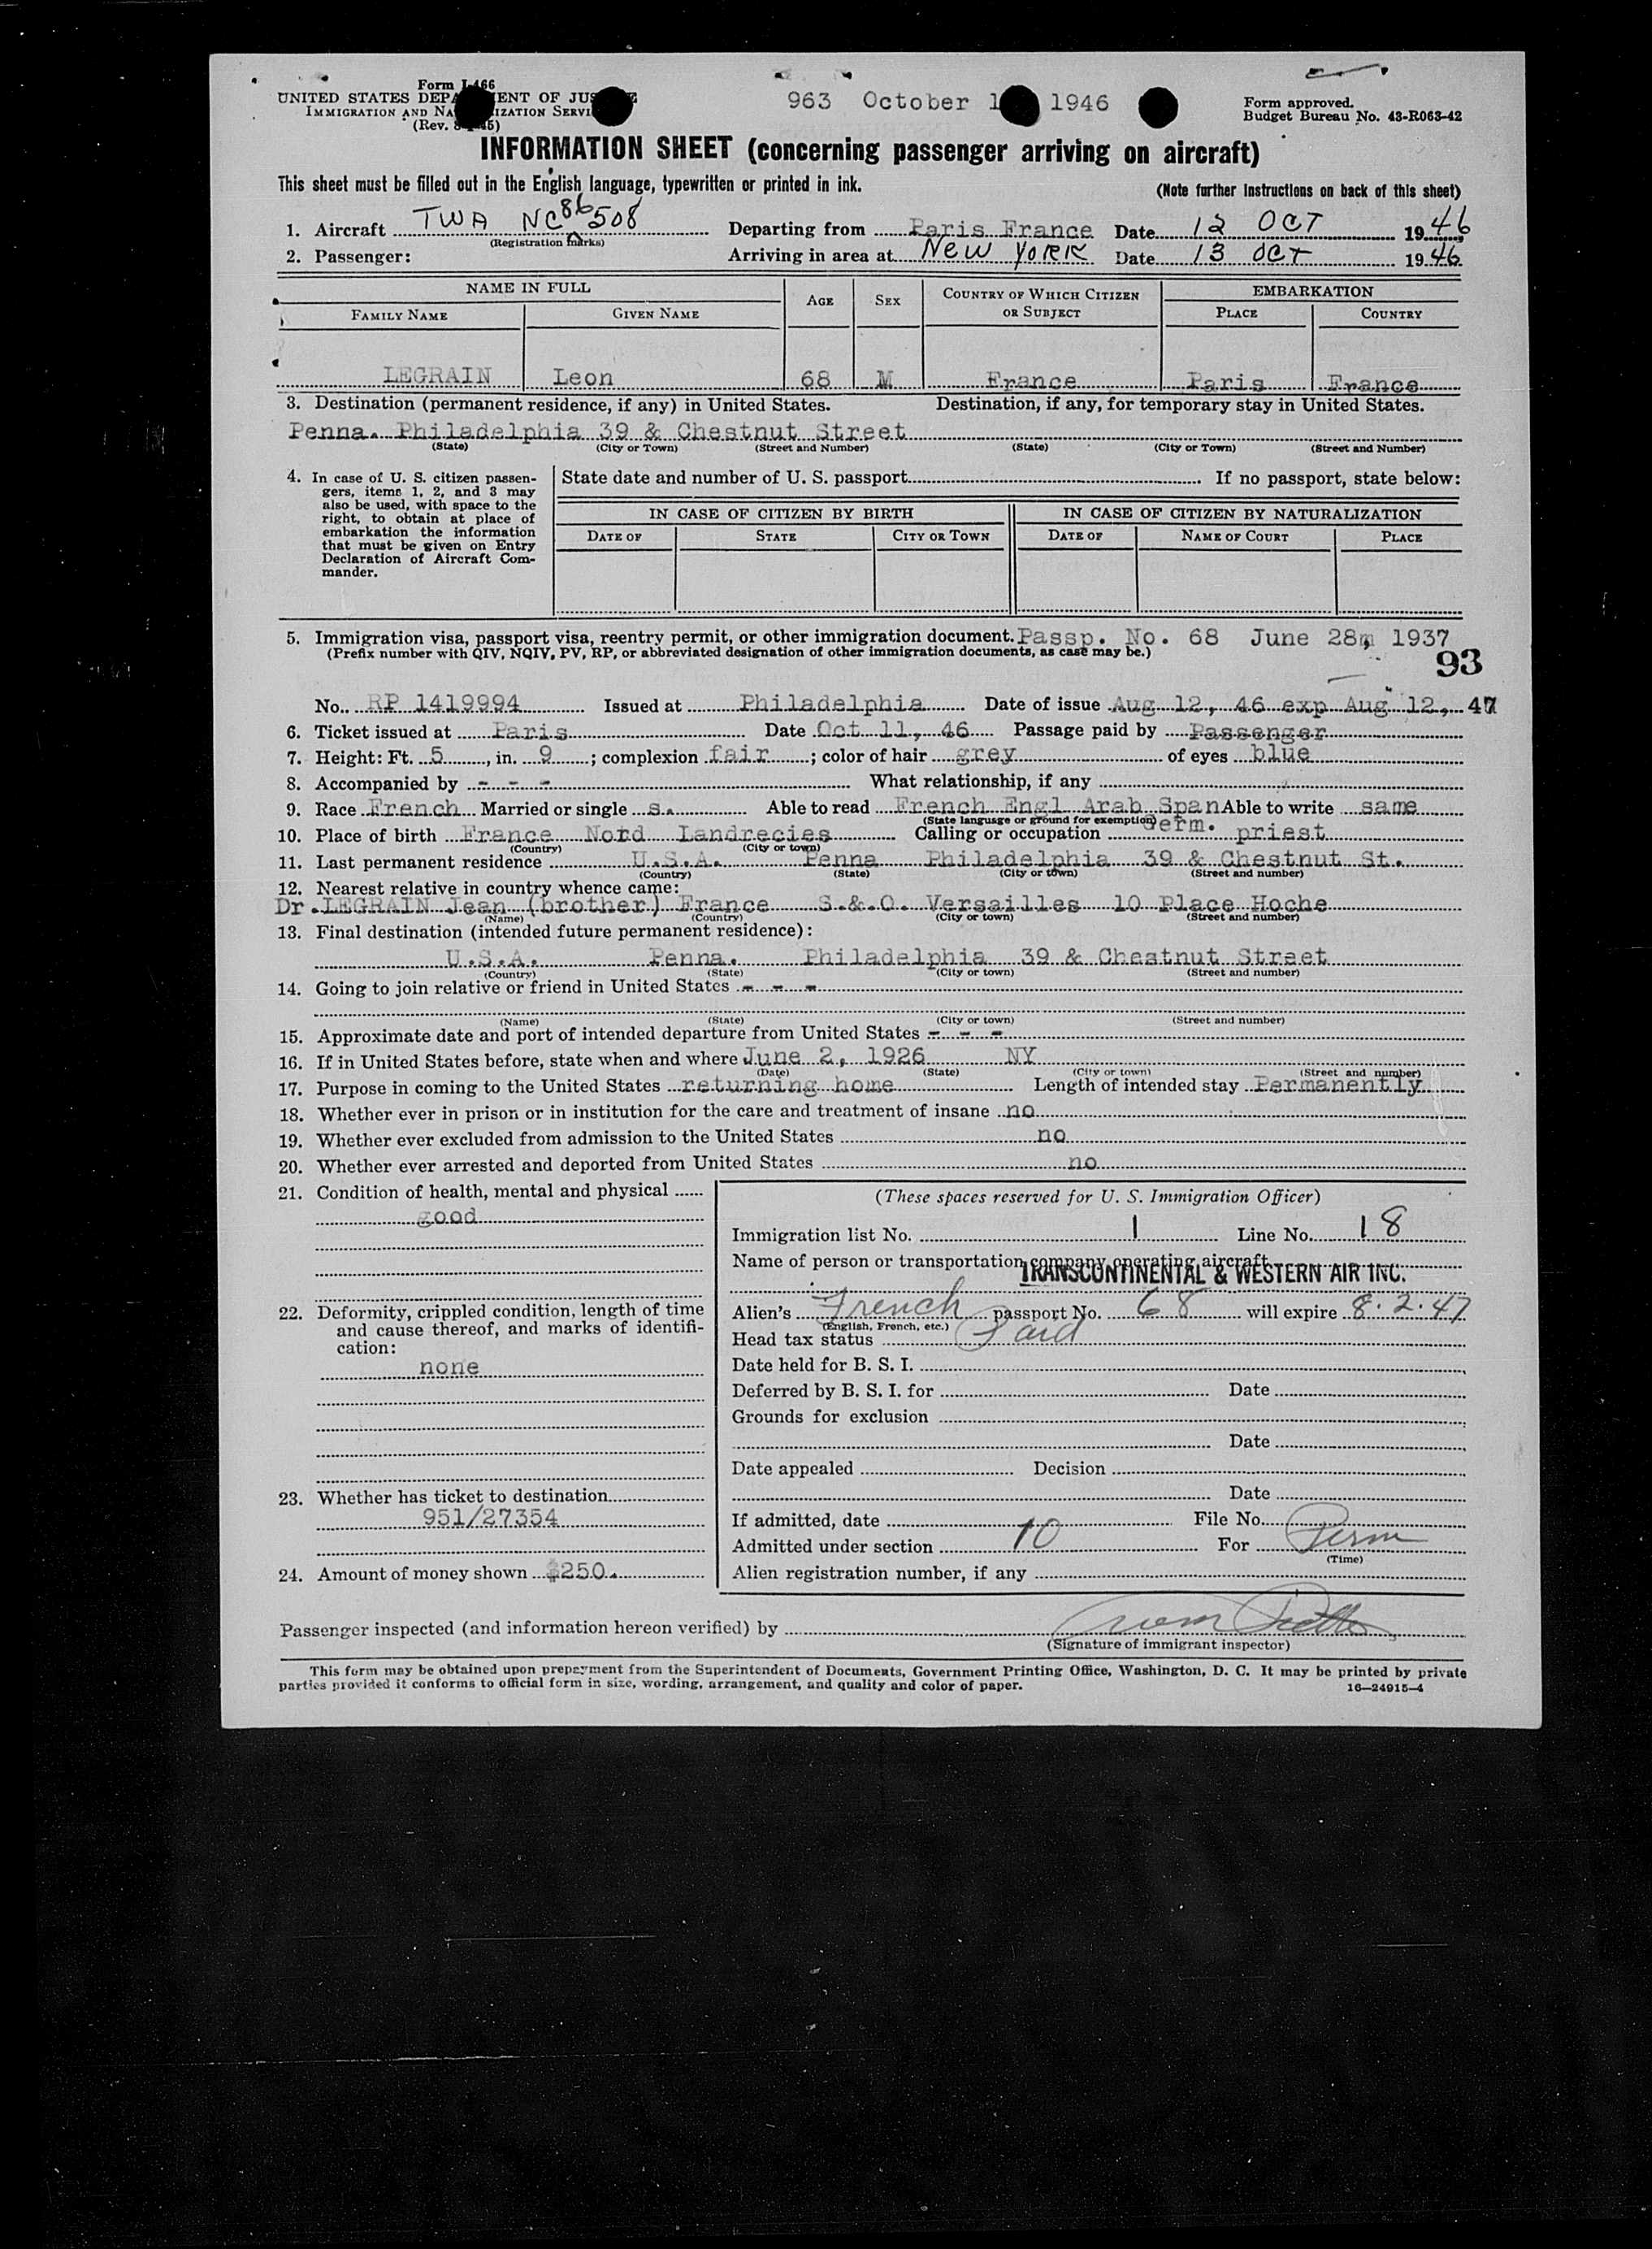 Form I-466
UNITED STATES DEPA ENT OF JUS
IMMIGRATION AND NA IZATION SERVI
(Rev. 5)
963 October 1 1946
Form approved.
Budget Bureau No. 43-R063-42
INFORMATION SHEET (concerning passenger arriving on aircraft)
This sheet must be filled out in the English language, typewritten or printed in ink. (Note further instructions on back of this sheet)
1. Aircraft TWA NC86508 Departing from Paris France Date 12 OCT 1946
(Registration marks)
2. Passenger: Arriving in area at New York Date 13 OCT 1946
NAME IN FULL AGE SEX COUNTRY OF WHICH CITIZEN OR SUBJECT EMBARKATION
FAMILY NAME GIVEN NAME PLACE COUNTRY
LEGRAIN Leon 68 M France Paris France
3. Destination (permanent residence, if any) in United States. Destination, if any, for temporary stay in United States.
Penna. Philadelphia 39 & Chestnut Street
(State) (City or Town) (Street and Number) (State) (City or Town) (Street and Number)
4. In case of U. S. citizen passen-
gers, items 1, 2, and 3 may
also be used, with space to the
right, to obtain at place of
embarkation the information
that must be given on Entry
Declaration of Aircraft Com-
mander.
State date and number of U. S. passport If no passport, state below:
IN CASE OF CITIZEN BY BIRTH IN CASE OF CITIZEN BY NATURALIZATION
DATE OF STATE CITY OR TOWN DATE OF NAME OF COURT PLACE
5. Immigration visa, passport visa, reentry permit, or other immigration document. Passp. No. 68 June 28, 1937
(Prefix number with QIV, NQIV, PV, RP, or abbreviated designation of other immigration documents, as case may be.)
93
No. RP 1419994 Issued at Philadelphia Date of issue Aug 12, 46 exp Aug 12, 47
6. Ticket issued at Paris Date Oct 11, 46 Passage paid by Passenger
7. Height: Ft. 5, in. 9; complexion fair; color of hair grey of eyes blue
8. Accompanied by - - - What relationship, if any
9. Race French Married or single s. Able to read French Engl Arab Span Able to write same
(State language or ground for exemption) Germ.
10. Place of birth France Nord Landrecies Calling or occupation priest
(Country) (City or town)
11. Last permanent residence U.S.A. Penna Philadelphia 39 & Chestnut St.
(Country) (State) (City or town) (Street and number)
12. Nearest relative in country whence came:
Dr. LEGRAIN Jean (brother) France S.&O. Versailles 10 Place Hoche
(Name) (Country) (City or town) (Street and number)
13. Final destination (intended future permanent residence):
U.S.A. Penna. Philadelphia 39 & Chestnut Street
(Country) (State) (City or town) (Street and number)
14. Going to join relative or friend in United States - - -
(Name) (State) (City or town) (Street and number)
15. Approximate date and port of intended departure from United States - - -
16. If in United States before, state when and where June 2, 1926 NY
(Date) (State) (City or town) (Street and number)
17. Purpose in coming to the United States returning home Length of intended stay Permanently
18. Whether ever in prison or in institution for the care and treatment of insane no
19. Whether ever excluded from admission to the United States no
20. Whether ever arrested and deported from United States no
21. Condition of health, mental and physical
good
22. Deformity, crippled condition, length of time
and cause thereof, and marks of identifi-
cation:
none
23. Whether has ticket to destination
951/27354
24. Amount of money shown $250.
(These spaces reserved for U. S. Immigration Officer)
Immigration list No. 1 Line No. 18
Name of person or transportation company operating aircraft
TRANSCONTINENTAL & WESTERN AIR INC.
Alien's French passport No. 68 will expire 8.2.47
(English, French, etc.)
Head tax status Paid
Date held for B. S. I.
Deferred by B. S. I. for Date
Grounds for exclusion
Date
Date appealed Decision
Date
If admitted, date File No.
Admitted under section 10 For Perm
(Time)
Alien registration number, if any
Passenger inspected (and information hereon verified) by
(Signature of immigrant inspector)
This form may be obtained upon prepayment from the Superintendent of Documents, Government Printing Office, Washington, D. C. It may be printed by private
parties provided it conforms to official form in size, wording, arrangement, and quality and color of paper. 16—24915-4